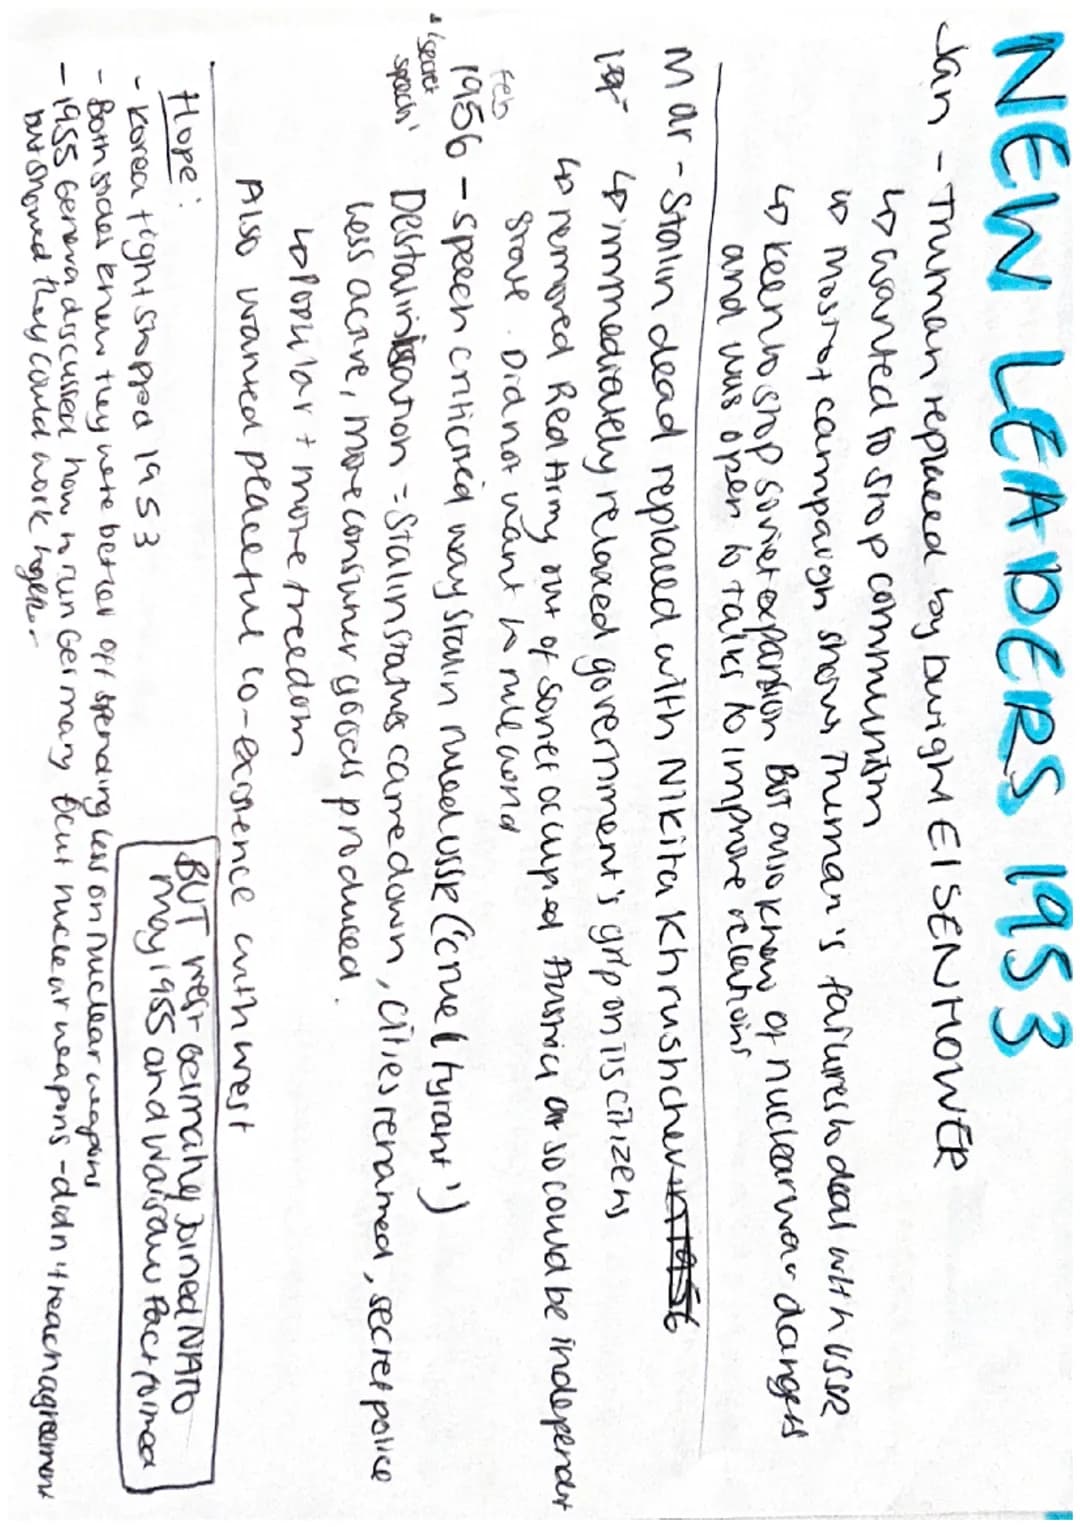 NEW LEADERS 1953
Jan - Truman replaced by Dwight EISENHOWER
↳ wanted to stop communism
↳ most of campaign shows Truman's failures to deal with USSR
↳ keen to stop soviet expansion BUT also know of nuclear war dangers
and was open to talks to improve relations
Mar - Stalin dead replaced with Nikita Khrushchev in 1956
↳ immediately relaxed government's grip on its citizens
↳ removed Red Army out of Soviet occupied Austria so could be independent
state. Did not want to rule world
Feb
1956 - speech criticised way Stalin ruled USSR ('cruel tyrant')
'secret speech'
Destalinisation = Stalin statues came down, cities renamed, secret police
less active, more consumer goods produced.
↳ popular + more freedom
Also wanted peaceful co-existence with west
Hope:
- Korea fight stopped 1953
- Both sides knew they were better off spending less on nuclear weapons
- 1955 Geneva discussed how to run Germany + cut nuclear weapons - didn't reach agreement
but showed they could work together
BUT West Germany joined NATO
May 1955 and Warsaw Pact formed